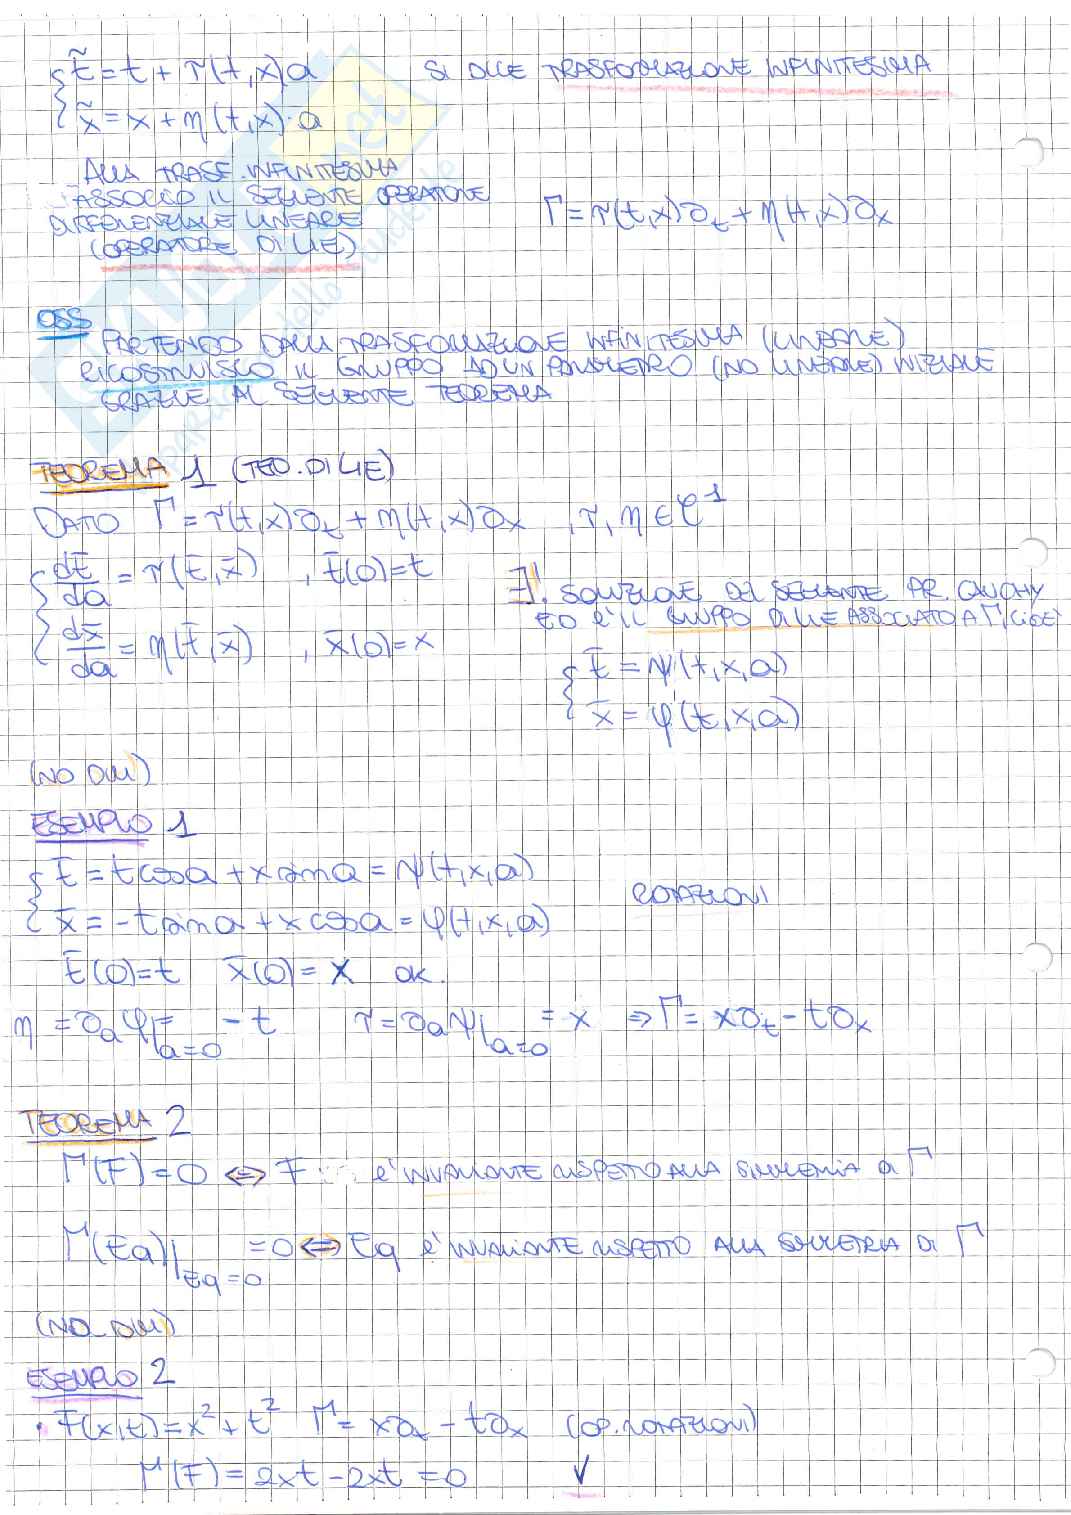 { t̃ = t + τ(t,x)a    SI DICE TRASFORMAZIONE INFINITESIMA
{ x̃ = x + η(t,x)·a
ALLA TRASF. INFINITESIMA
ASSOCIO IL SEGUENTE OPERATORE
DIFFERENZIALE LINEARE    Γ = τ(t,x)∂t + η(t,x)∂x
(OPERATORE DI LIE)
OSS
PARTENDO DALLA TRASFORMAZIONE INFINITESIMA (LINEARE)
RICOSTRUISCO IL GRUPPO AD UN PARAMETRO (NO LINEARE) INIZIALE
GRAZIE AL SEGUENTE TEOREMA
TEOREMA 1 (TEO. DI LIE)
DATO Γ = τ(t,x)∂t + η(t,x)∂x , τ, η ∈ C¹
{ dt̄/da = τ(t̄,x̄) , t̄(0)=t    ∃! SOLUZIONE DEL SEGUENTE PR. CAUCHY
ED È IL GRUPPO DI LIE ASSOCIATO A Γ, CIOÈ
{ dx̄/da = η(t̄,x̄) , x̄(0)=x
{ t̄ = ψ(t,x,a)
{ x̄ = φ(t,x,a)
(NO DIM)
ESEMPIO 1
{ t̄ = t cosa + x sina = ψ(t,x,a)
ROTAZIONI
{ x̄ = -t sina + x cosa = φ(t,x,a)
t̄(0)=t    x̄(0)=x    OK.
η = ∂aφ|a=0 = -t    τ = ∂aψ|a=0 = x ⇒ Γ = x∂t - t∂x
TEOREMA 2
Γ(F)=0 ⇔ F È INVARIANTE RISPETTO ALLA SIMMETRIA DI Γ
Γ(Eq)|Eq=0 = 0 ⇔ Eq È INVARIANTE RISPETTO ALLA SIMMETRIA DI Γ
(NO DIM)
ESEMPIO 2
• F(x,t) = x² + t²    Γ = x∂t - t∂x    (OP. ROTAZIONI)
Γ(F) = 2xt - 2xt = 0    ✓